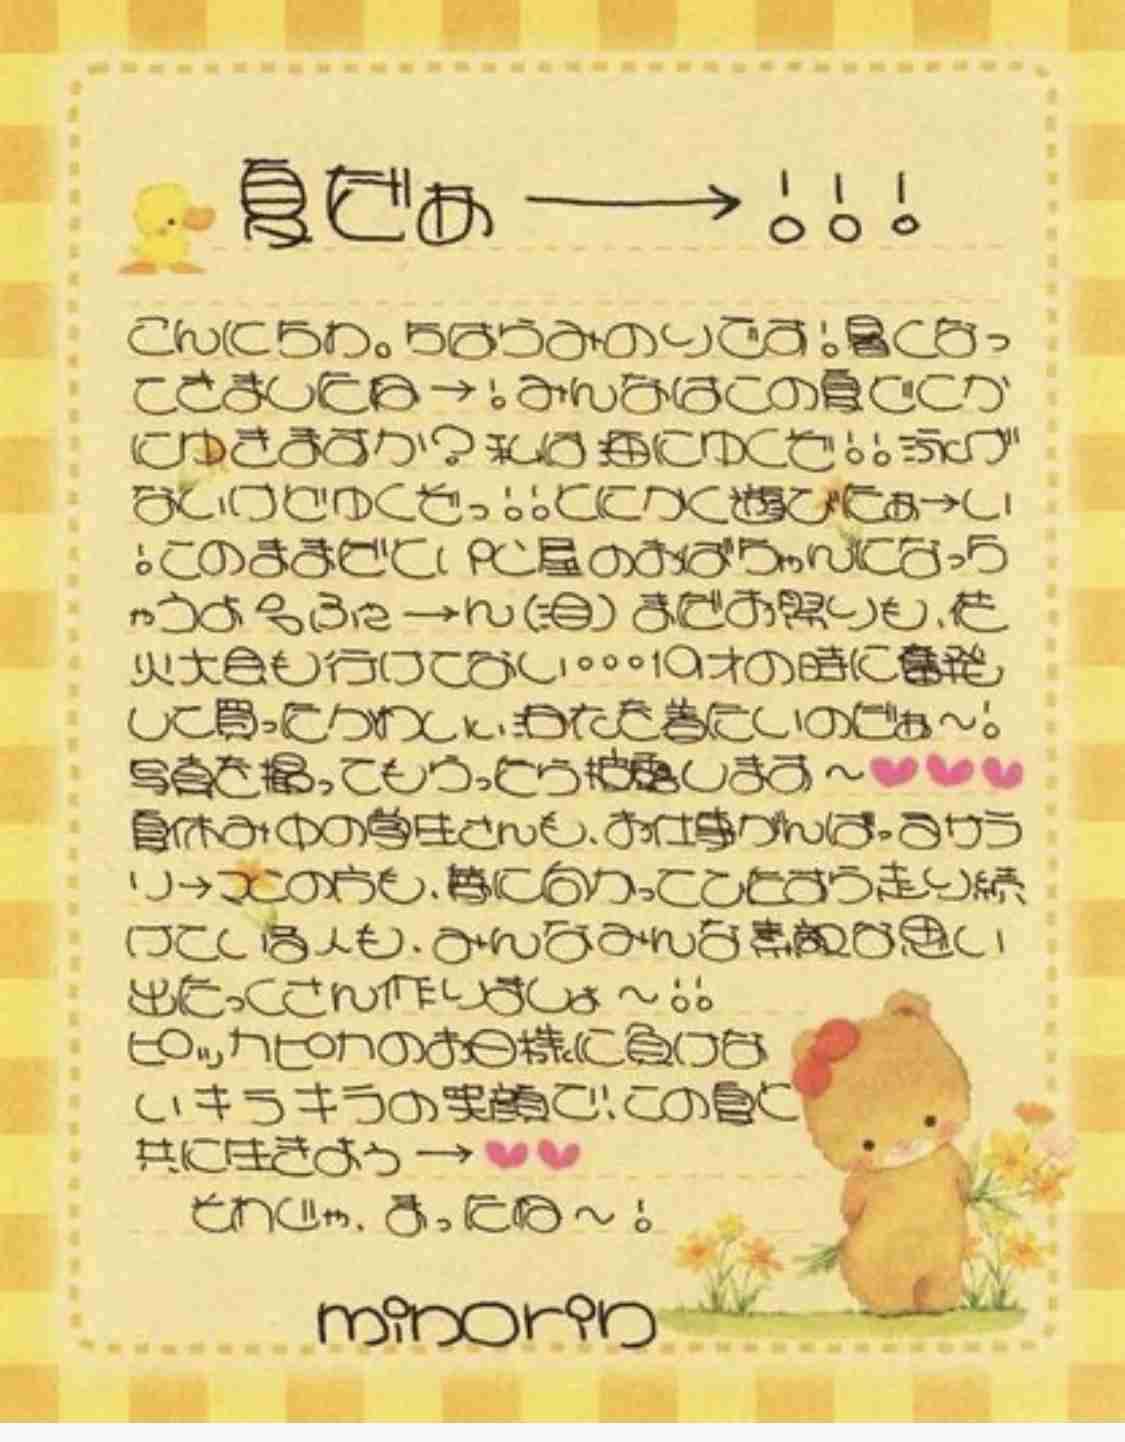 夏だぁ→!!!
こんにちわ。ちはらみのりです!暑くなっ
てきましたね→!みんなはこの夏どこか
にゆきますか?私は海にゆくぞ!!泳げ
ないけどゆくぞっ!!とにかく遊びたぁ→い
!このままだと、PC屋のおばちゃんになっち
ゃうよ ふえ→ん(泪)まだお祭りも、花
火大会も行けてない…19才の時に奮発
して買ったかわいい浴衣を着たいのだぁ〜!
写真を撮ってもらったら披露します〜♥♥♥
夏休み中の学生さんも、お仕事がんばってるサラ
リ→マンの方も、夢に向かってひたすら走り続
けている人も、みんなみんな素敵な思い
出たっくさん作りましょ〜!!
ピッカピカのお日様に負けな
いキラキラの笑顔で、この夏と
共に生きよう→♥♥
それじゃ、まったね〜!
minorin